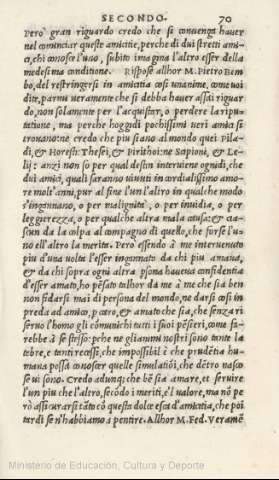 SECONDO. 70
pero gran riguardo credo che si conuenga hauer
nel cominciar queste amicitie, perche di dui stretti ami-
ci, chi conosce l'uno, subito imagina l'altro esser della
medesima conditione. Rispose allhor M. Pietro Bem
bo, del restringersi in amicitia cosi unanime, come uoi
dite, parmi ueramente che si debba hauer assai riguar
do, non solamente per l'acquistar, o perdere la ripu-
tatione, ma perche hoggidi pochissimi ueri amici si
trouano: ne credo che piu siano al mondo quei Pila-
di, & Horesti: Thesei, & Pirithoi: ne Sapioni, & Le-
lij: anzi non so per qual destin interuiene ognidi, che
dui amici, quali saranno uiuuti in cordialissimo amo-
re molt'anni, pur al fine l'un l'altro in qualche modo
s'ingannano, o per malignità, o per inuidia, o per
leggierezza, o per qualche altra mala causa: & cia-
scun da la colpa al compagno di quello, che forse l'u-
no e l'altro la merita. Però essendo à me interuenuto
piu d'una uolta l'esser ingannato da chi piu amaua,
& da chi sopra ogni altra psona haueua confidentia
d'esser amato, ho pēsato talhor da me à me che sia ben
non fidarsi mai di persona del mondo, ne darsi cosi in
preda ad amico, p caro, & amato che sia, che senza ri
seruo l'homo gli cōmunichi tutti i suoi pēsieri, come fa-
rebbe à se stesso: pche ne gli animi nostri sono tante la
tebre, e tanti recessi, che impossibil è che prudētia hu-
mana possa conoscer quelle simulatiōi, che dētro nasco
se ui sono. Credo adunq; che bē sia amare, et seruire
l'un piu che l'altro, secōdo i meriti, e'l ualore, ma nō pe
rò assicurarsi tāto cō questa dolce esca d'amicitia, che poi
tardi se n'habbiamo à pentire. Allhor M. Fed. Veramē
Ministerio de Educación, Cultura y Deporte